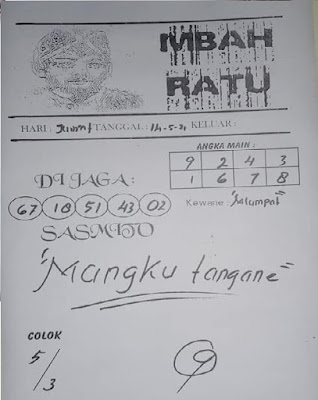 MBAH
RATU
HARI : Jum'at TANGGAL : 14-5-21 KELUAR :
ANGKA MAIN :
9 2 4 3
1 6 7 8
DI JAGA :
67 18 51 43 02
Kewane :
SASMITO
"Mangku tangane"
COLOK
5/3
9